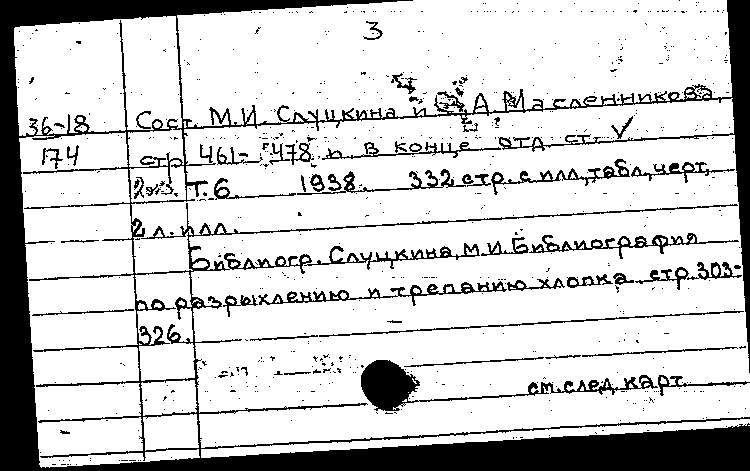 3
36-18 Сост. М.И. Слуцкина и А Масленникова,
174 стр 461- 478 и в конце отд. ст. ✓
2экз. Т. 6. 1938. 332 стр. с илл., табл., черт,
2 л. илл.
Библиогр. Слуцкина, М.И. Библиография
по разрыхлению и трепанию хлопка стр. 303-
326.
см. след. карт.